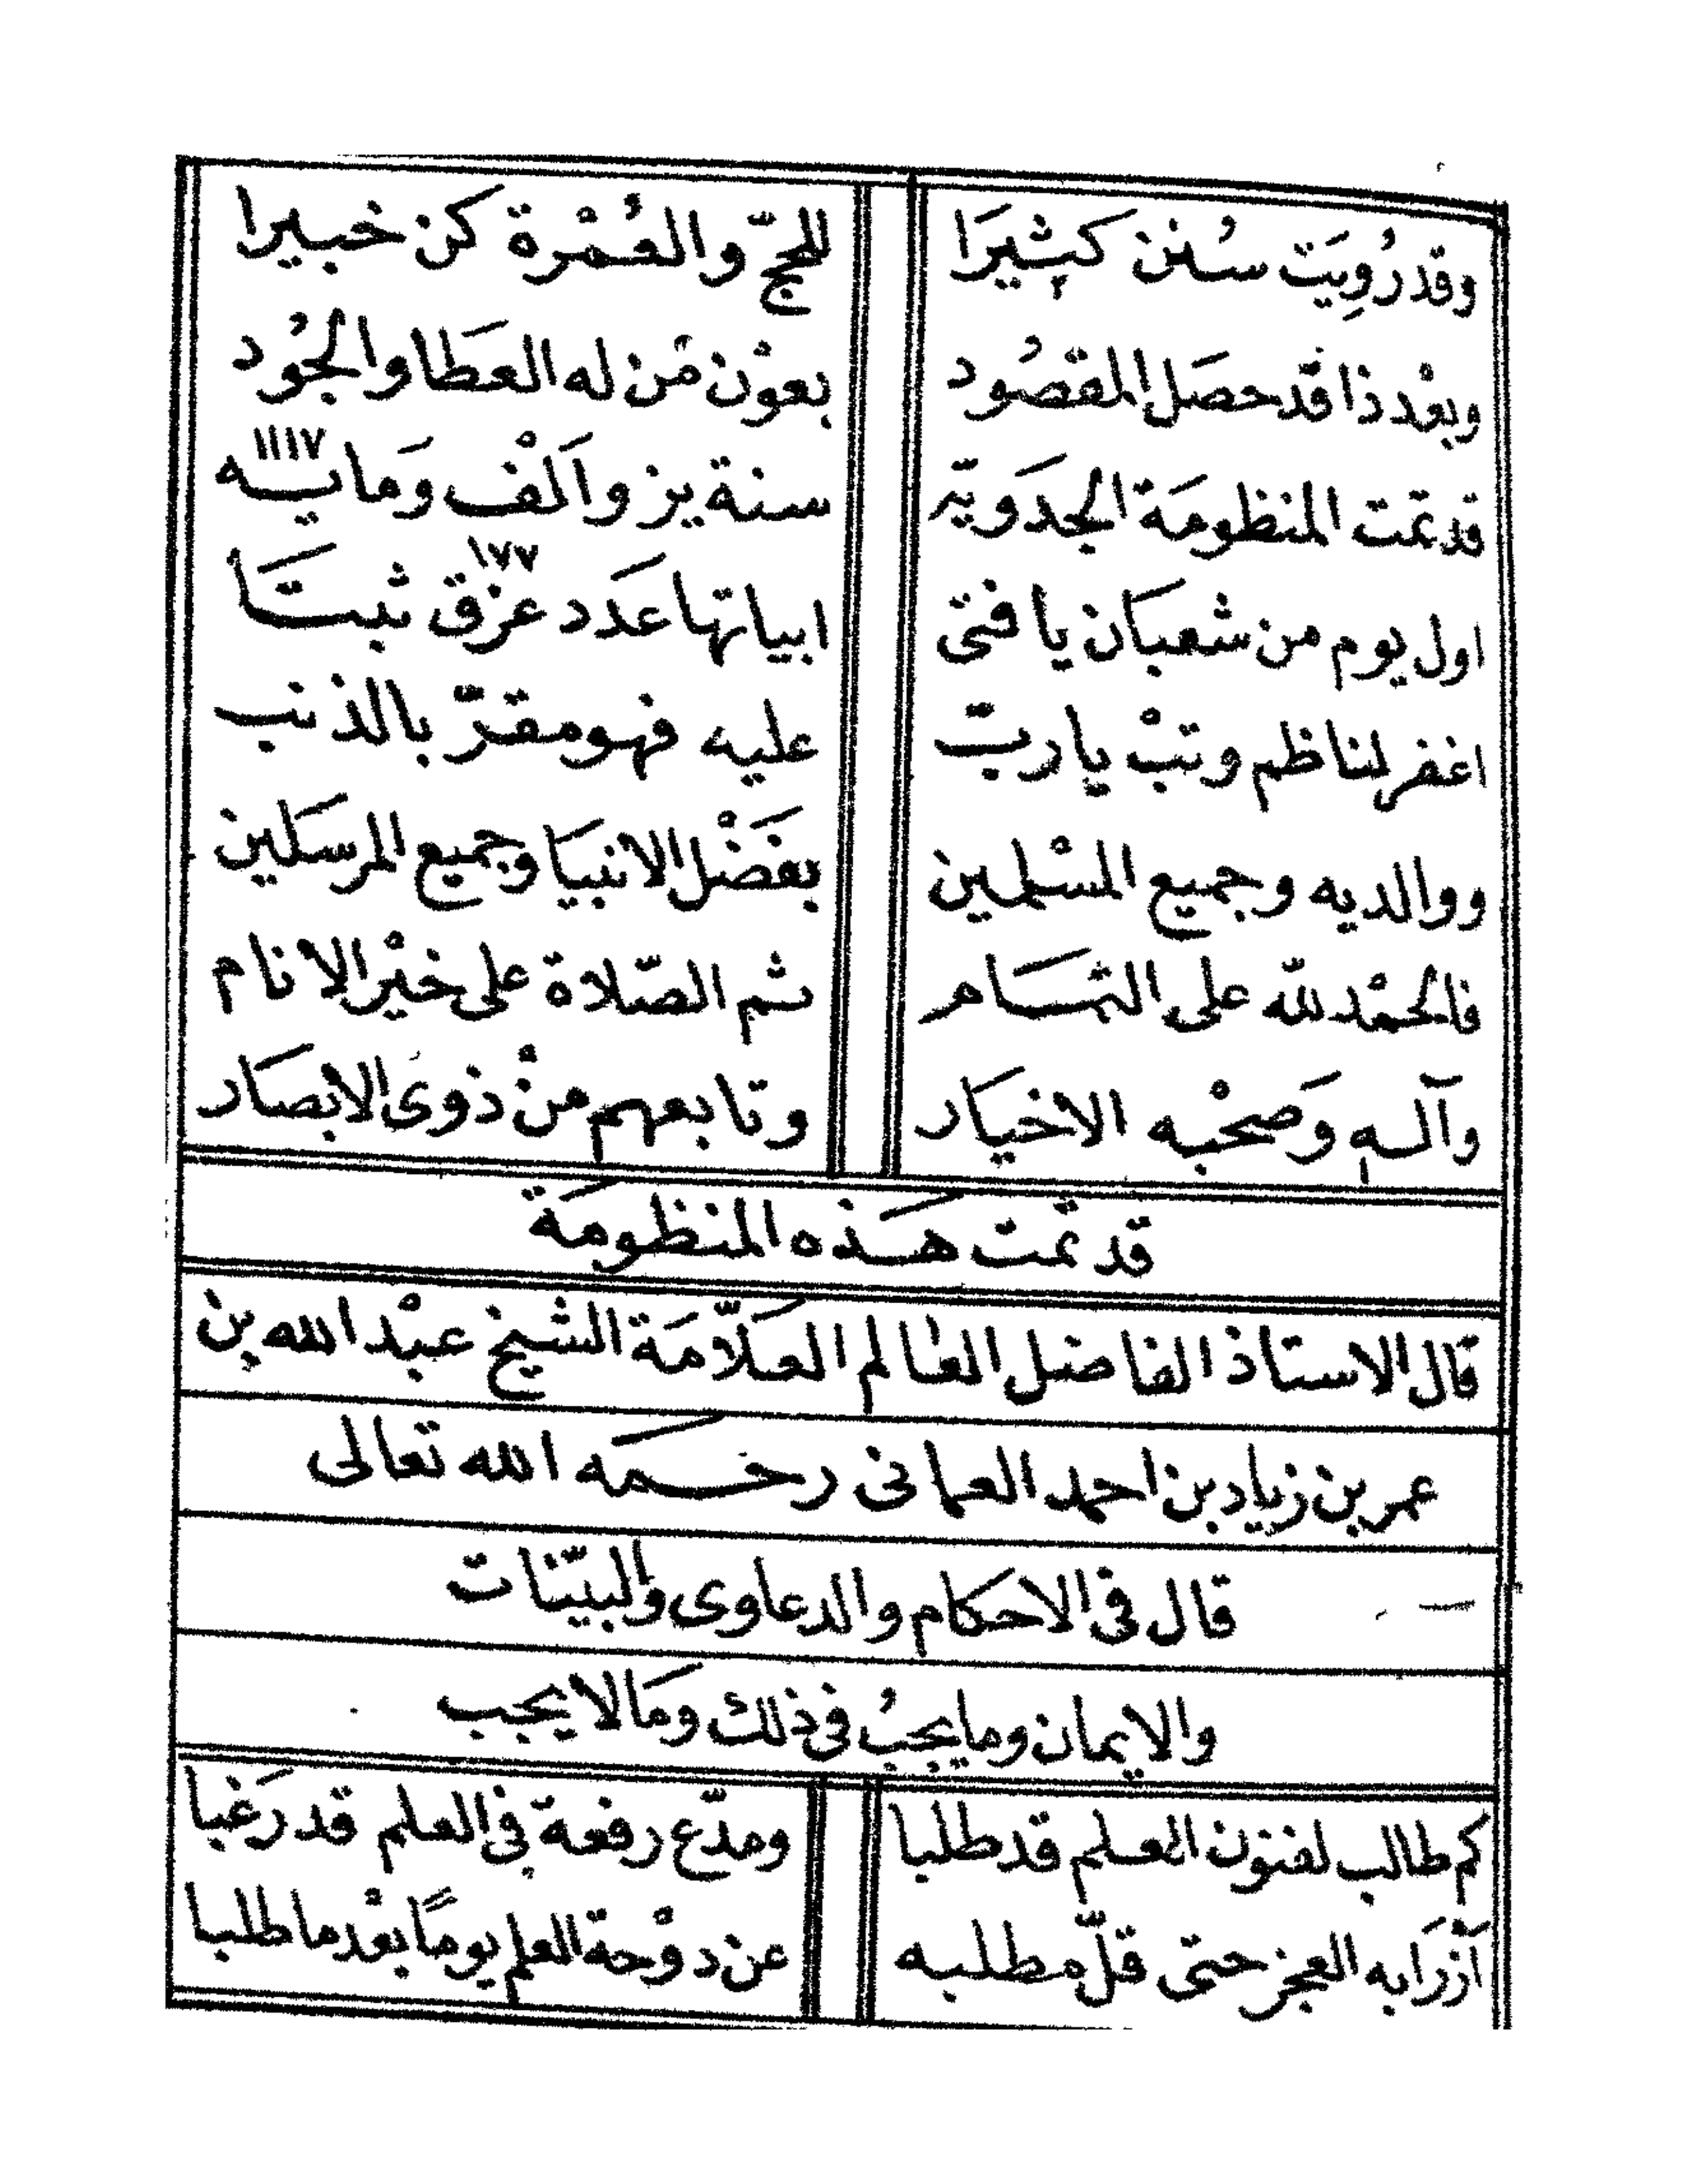 وقد رُوِيَت سُنن كثيرَا للحجّ والعُمْرة كن خبيرا
وبعْد ذا قد حصَل المقصُود بعوْن مَن له العَطا والجُود
قد تمت المنظومَة الجدَويّه سنة يز وألْف وَمايه ١١١٧
اول يوم من شعبَان يا فتى ابياتها عَدد عزق ثبتَا ١٧٧
اغفر لناظم وتبْ يا ربّ عليه فهو مقرّ بالذنب
ووالديه وجميع المسْلمين بفَضْل الانبيَا وجميع المرسَلين
فالحمْد للّه على التمَام ثم الصّلاة على خيْر الانام
وآله وَصحْبه الاخيَار وتابعهم منْ ذوى الابصَار
قد تمت هَذه المنظومَة
قال الاستاذ الفاضل العالم العَلاّمَة الشيخ عبْد الله بن
عمر بن زياد بن احمد العمانى رحمَه الله تعالى
قال فى الاحكام والدعاوى والبيّنات
والايمان وما يجبُ فى ذلك ومَا لا يجب
كم طالب لفنون العلم قد طلبا ومدّع رفعة فى العلم قد رَغبا
أزرَابه العجز حتى قلّ مطلبه عن دوْحة العلم يومًا بعْد ما طلبا